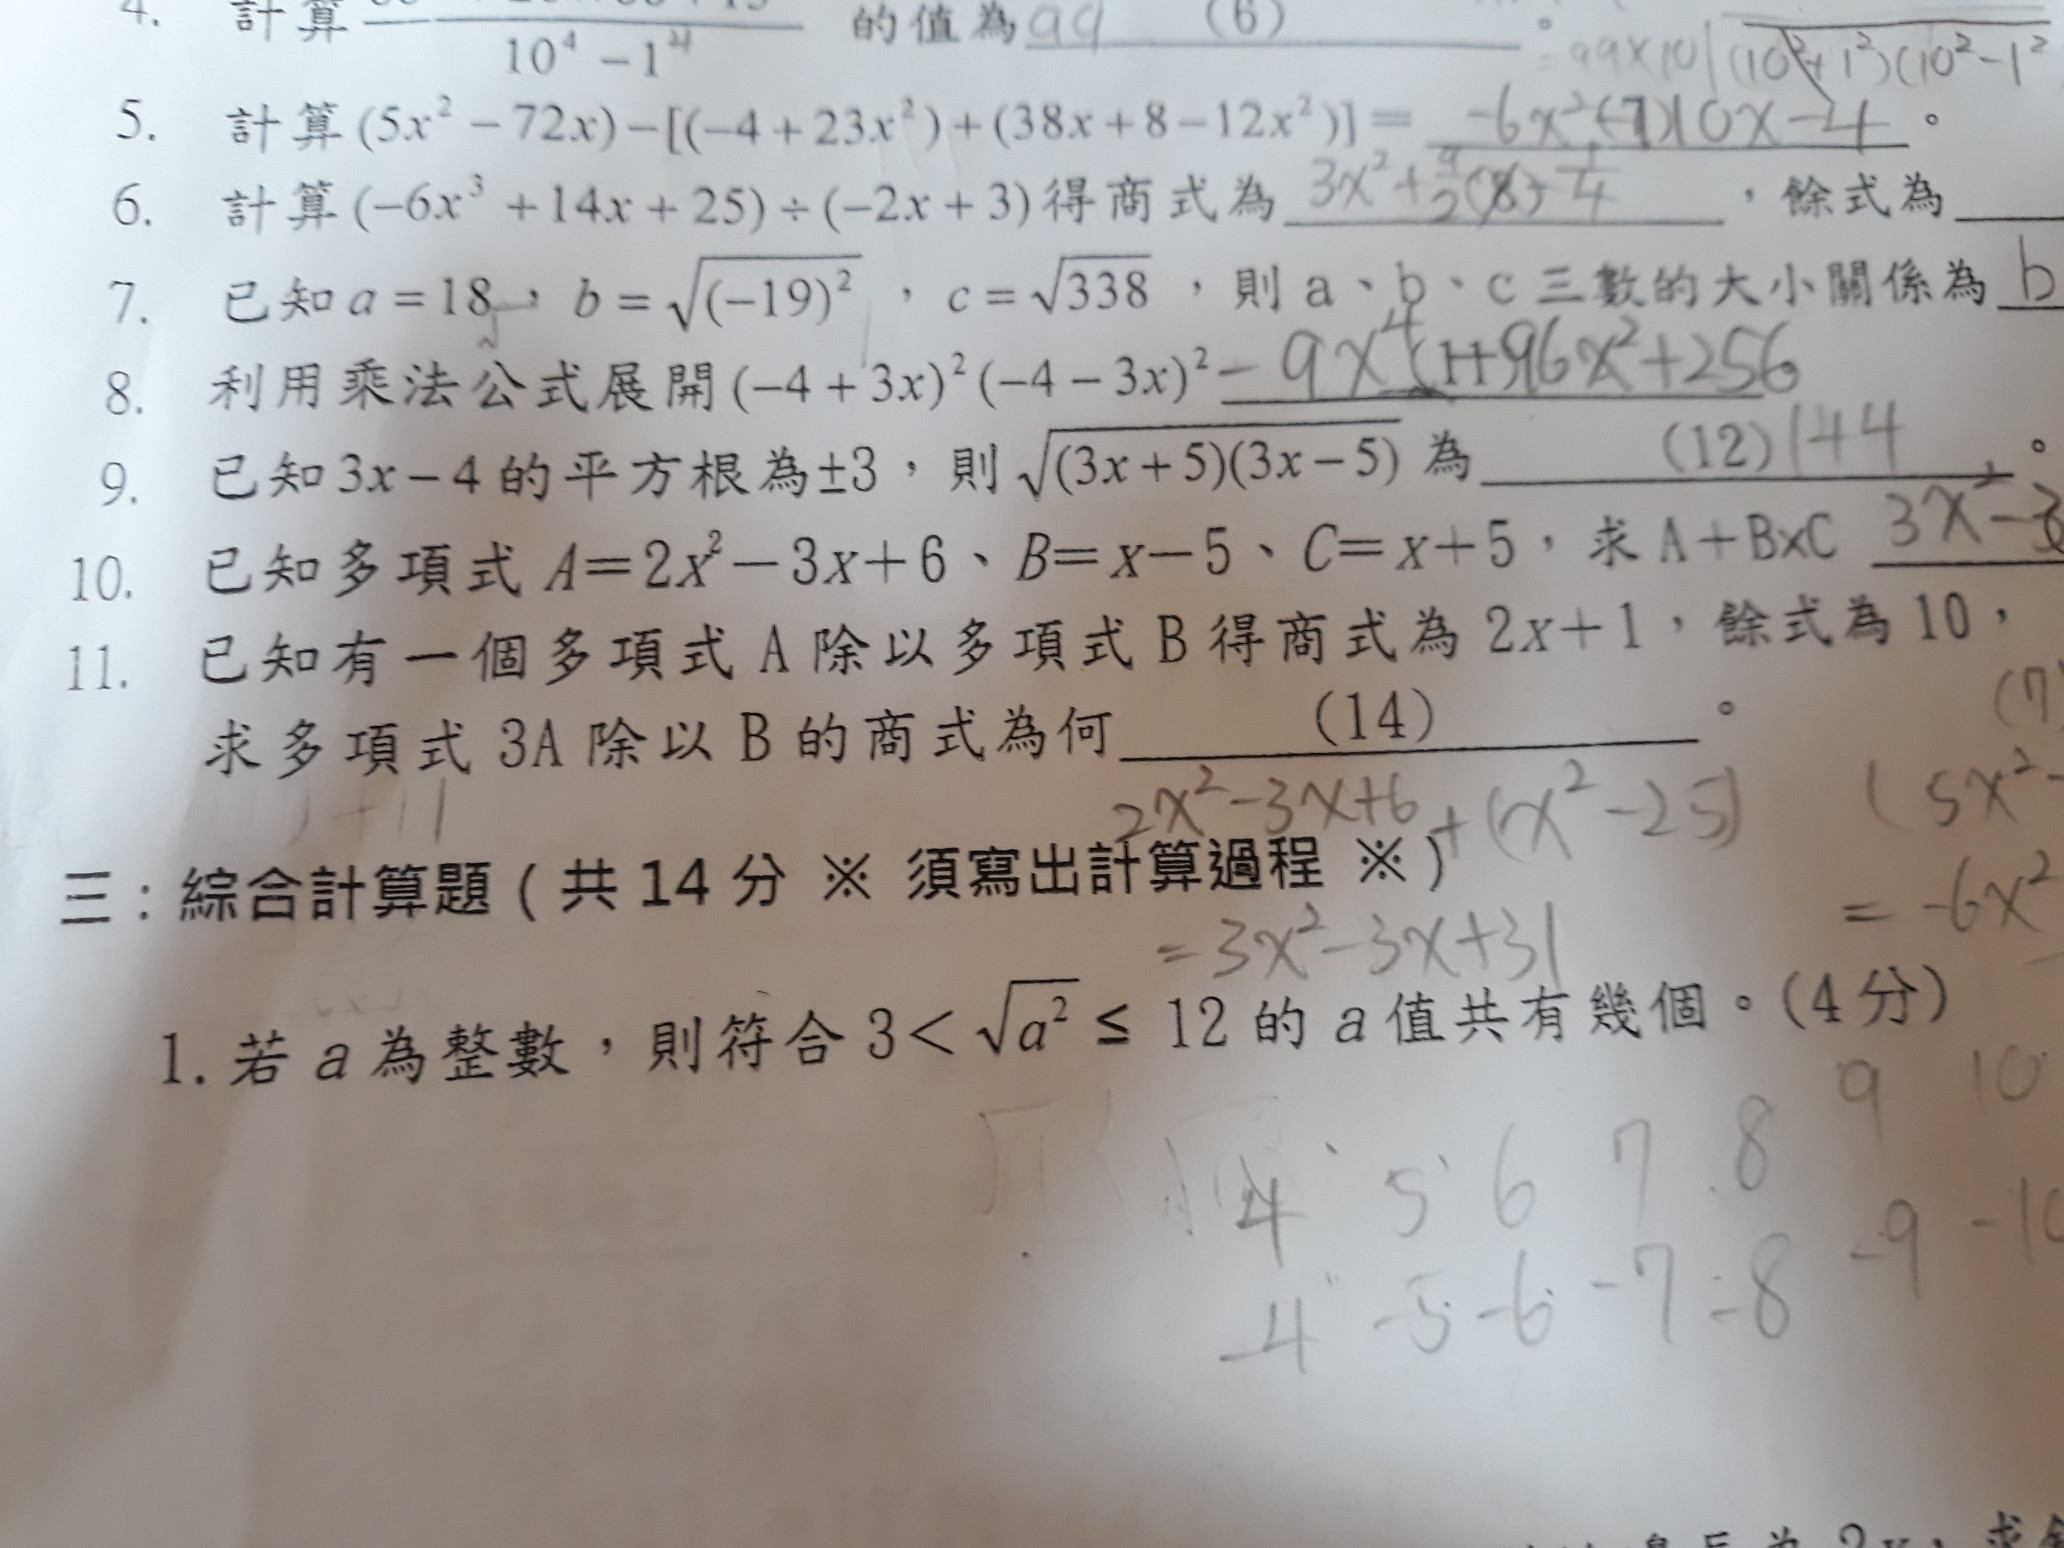 4. 計算 10⁴ − 1⁴ 的值為 99 (6) 。
= 99×101 (10²+1²)(10²−1²
5. 計算 (5x² − 72x) − [(−4 + 23x²) + (38x + 8 − 12x²)] = −6x² (7) 110x − 4 。
6. 計算 (−6x³ + 14x + 25) ÷ (−2x + 3) 得商式為 3x² + 9/2 (8) 1/4 ，餘式為
7. 已知 a = 18 ， b = √(−19)² ， c = √338 ，則 a、b、c 三數的大小關係為 b
8. 利用乘法公式展開 (−4 + 3x)² (−4 − 3x)² = 9x⁴ (11) + 96x² + 256
9. 已知 3x − 4 的平方根為 ±3，則 √(3x + 5)(3x − 5) 為 (12) 144 。
10. 已知多項式 A = 2x² − 3x + 6、B = x − 5、C = x + 5，求 A + B×C 3x² − 3
11. 已知有一個多項式 A 除以多項式 B 得商式為 2x + 1，餘式為 10，
求多項式 3A 除以 B 的商式為何 (14) 。
(7
2x² − 3x + 6 + (x² − 25) (5x² −
三：綜合計算題 ( 共 14 分 ※ 須寫出計算過程 ※ )
= 3x² − 3x + 31 = −6x²
1. 若 a 為整數，則符合 3 < √a² ≤ 12 的 a 值共有幾個。(4 分)
4 5 6 7 8 9 10
−4 −5 −6 −7 −8 −9 −10